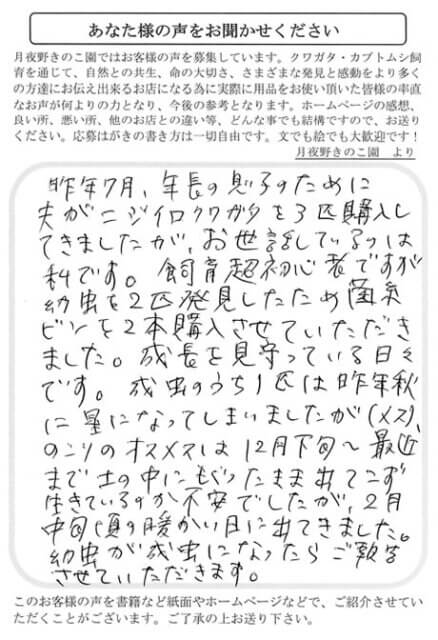 あなた様の声をお聞かせください
月夜野きのこ園ではお客様の声を募集しています。クワガタ・カブトムシ飼
育を通じて、自然との共生、命の大切さ、さまざまな発見と感動をより多く
の方達にお伝え出来るお店になる為に実際に用品をお使い頂いた皆様の率直
なお声が何よりの力となり、今後の参考となります。ホームページの感想、
良い所、悪い所、他のお店との違い等、どんな事でも結構ですので、お送り
ください。応募はがきの書き方は一切自由です。文でも絵でも大歓迎です！
月夜野きのこ園 より
昨年7月、年長の息子のために
夫がニジイロクワガタを3匹購入し
てきましたが、お世話をしているのは
私です。飼育超初心者ですが
幼虫を2匹発見したため菌糸
ビンを2本購入させていただき
ました。成長を見守っている日々
です。成虫のうち1匹は昨年秋
に星になってしまいましたが(メス)、
のこりのオスメスは12月下旬～最近
まで土の中にもぐったまま出てこず
生きているのか不安でしたが、2月
中旬頃の暖かい日に出てきました。
幼虫が成虫になったらご報告
させていただきます。
このお客様の声を書籍など紙面やホームページなどで、ご紹介させていた
だくことがございます。ご了承の上お送り下さい。